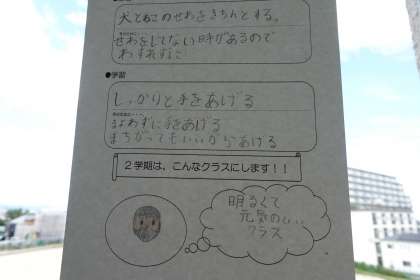 犬とねこのせわをきちんとする。
せわをしてない時があるので
わすれずに
●学習
しっかりと手をあげる
まよわずに手をあげる
まちがってもいいからあげる
2学期は、こんなクラスにします!!
明るくて
元気のいい
クラス